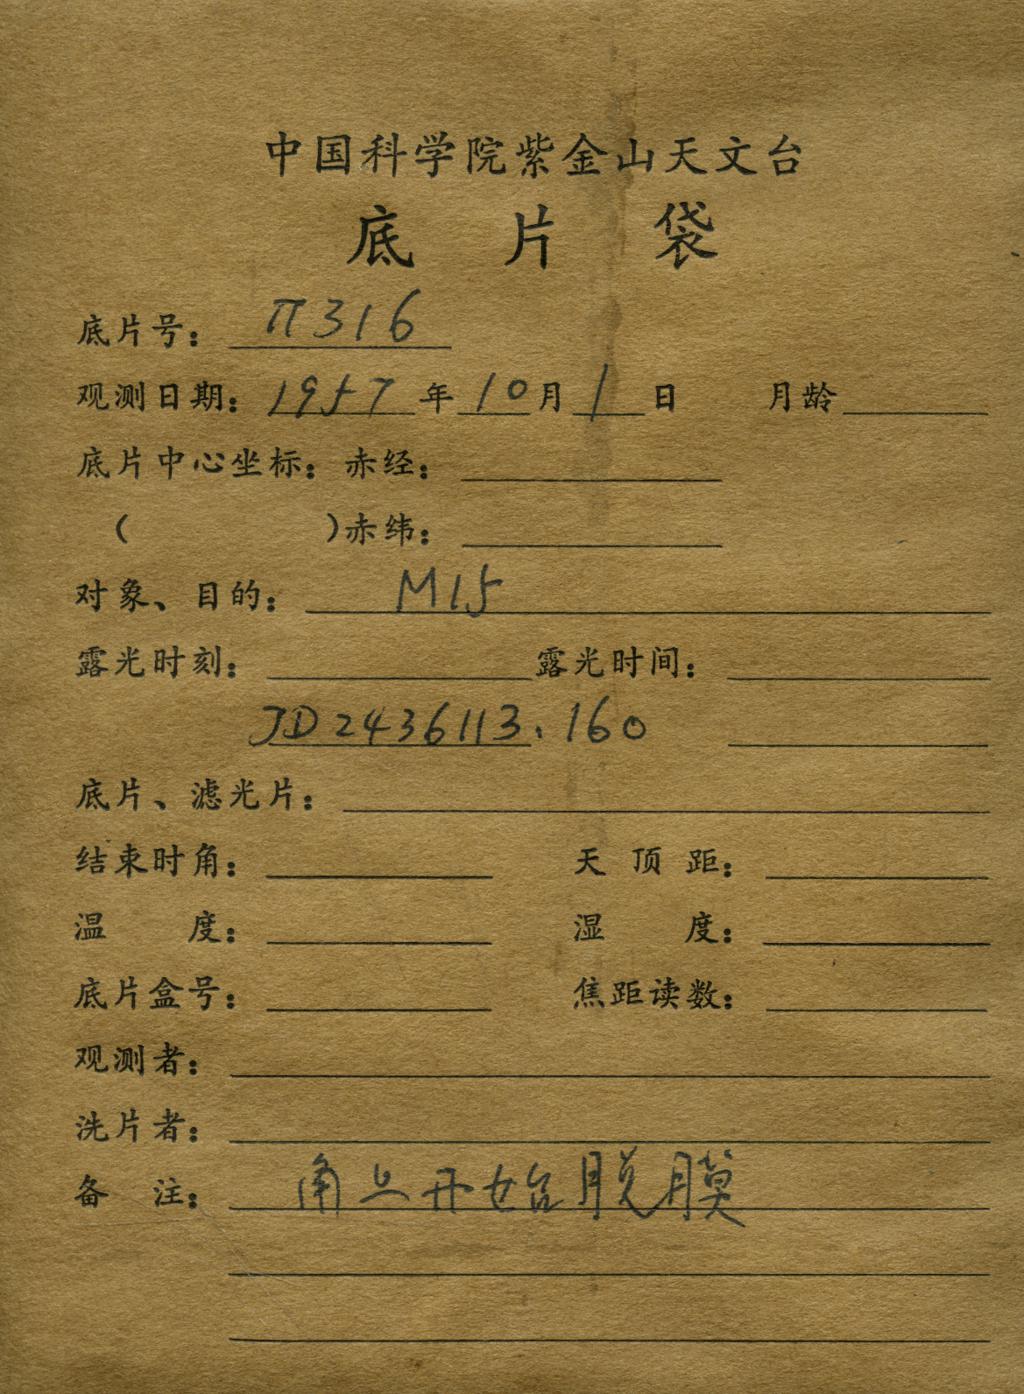 中国科学院紫金山天文台
底片袋
底片号: π316
观测日期: 1957年10月1日 月龄
底片中心坐标: 赤经:
( )赤纬:
对象、目的: M15
露光时刻: 露光时间:
JD2436113.160
底片、滤光片:
结束时角: 天顶距:
温度: 湿度:
底片盒号: 焦距读数:
观测者:
洗片者:
备注: 角上开始脱膜